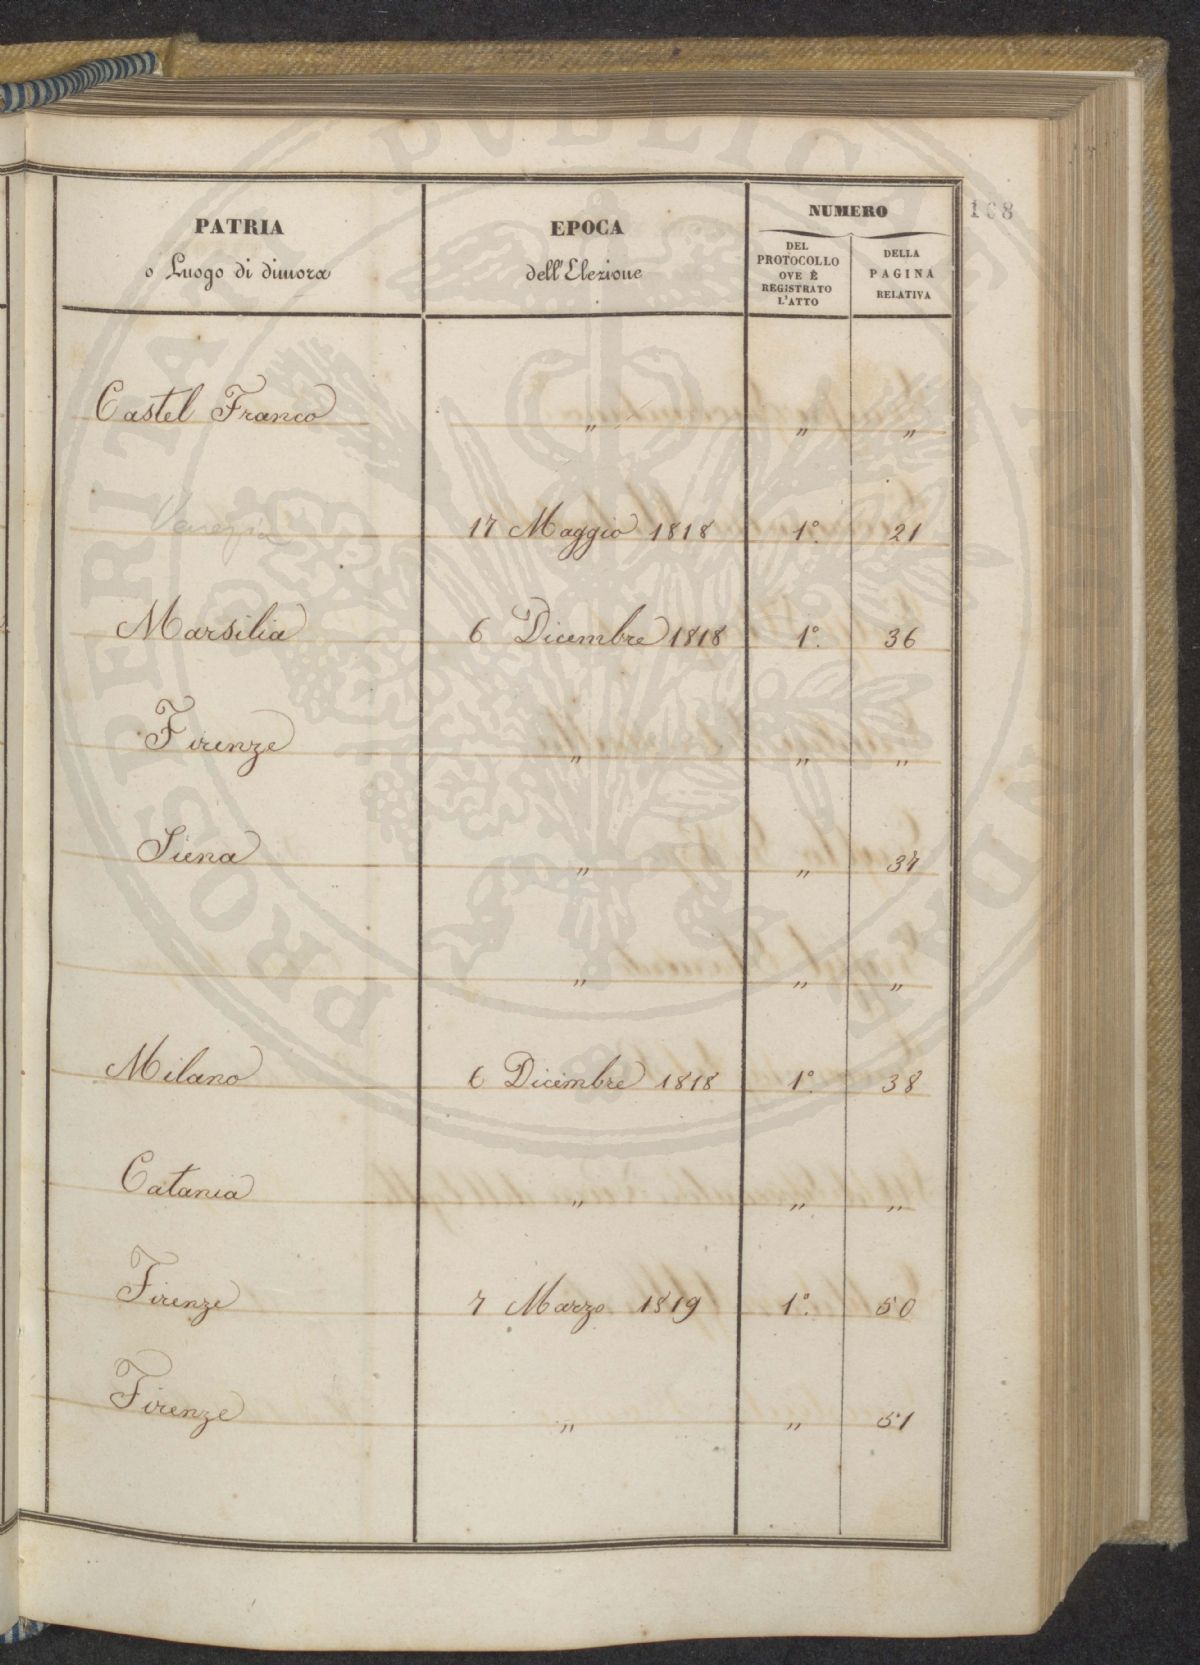 PATRIA
o Luogo di dimora
EPOCA
dell'Elezione
NUMERO
DEL
PROTOCOLLO
OVE È
REGISTRATO
L'ATTO
DELLA
PAGINA
RELATIVA
168
Castel Franco " " "
Venezia 17 Maggio 1818 1º. 21
Marsilia 6 Dicembre 1818 1º. 36
Firenze " " "
Siena " " 37
" " "
Milano 6 Dicembre 1818 1º. 38
Catania " " "
Firenze 7 Marzo 1819 1º. 50
Firenze " " 51
PUBLICAE
PROSPERITATI